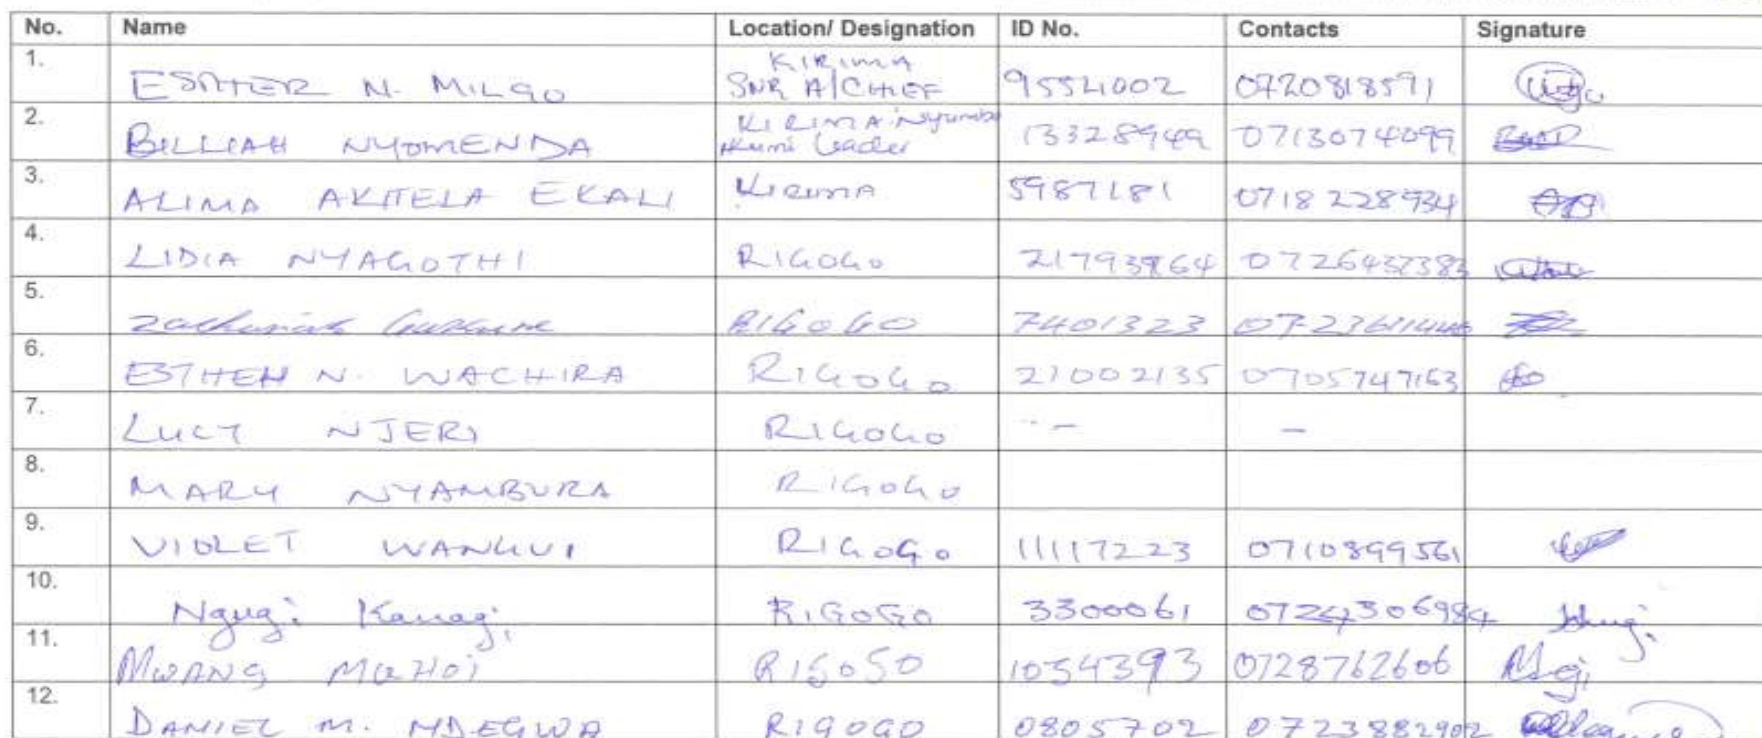 No. Name Location/ Designation ID No. Contacts Signature
1. ESTHER N. MILGO KIRIMA SNR A/CHIEF 95521002 0720818591
2. BILLIAH NYOMENDA KIRIMA Nyumba Kumi Leader 13328949 0713074099
3. ALIMA AKITELA EKALI KIRIMA 5987181 0718228934
4. LIDIA NYAGOTHI RIGOGO
5. Zachariah RIGOGO 7401323
6. ESTHEH N. WACHIRA RIGOGO 21002135 0705747163
7. LUCY NJERI RIGOGO - -
8. MARY NYAMBURA RIGOGO
9. VIOLET WANGUI RIGOGO 11117223 0710899561
10. Ngugi RIGOGO 3300061
11. MWANG RIGOGO 10354393 0728762606
12. DANIEL M. NDEGWA RIGOGO 0805702 0723882902